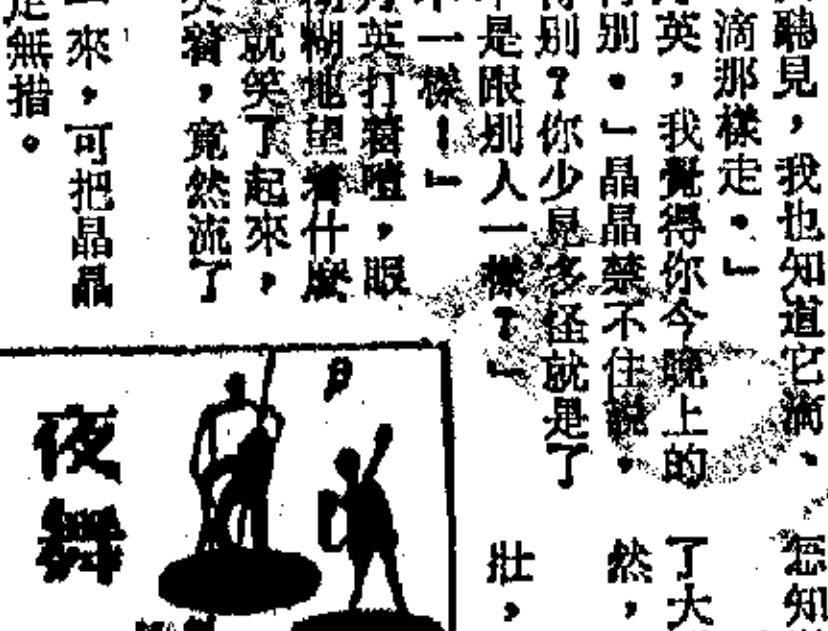 聽見，我也知道它滴、
滴那樣走。」
英，我覺得你今晚上的
別。」晶晶禁不住說。
得別？你少見多怪就是了
是跟別人一樣？」
不一樣！」
英打着噎，眼
糊地望着什麼
就笑了起來，
笑着，竟然流了
來，可把晶晶
無措。
怎知
了大
然，
壯，
夜舞